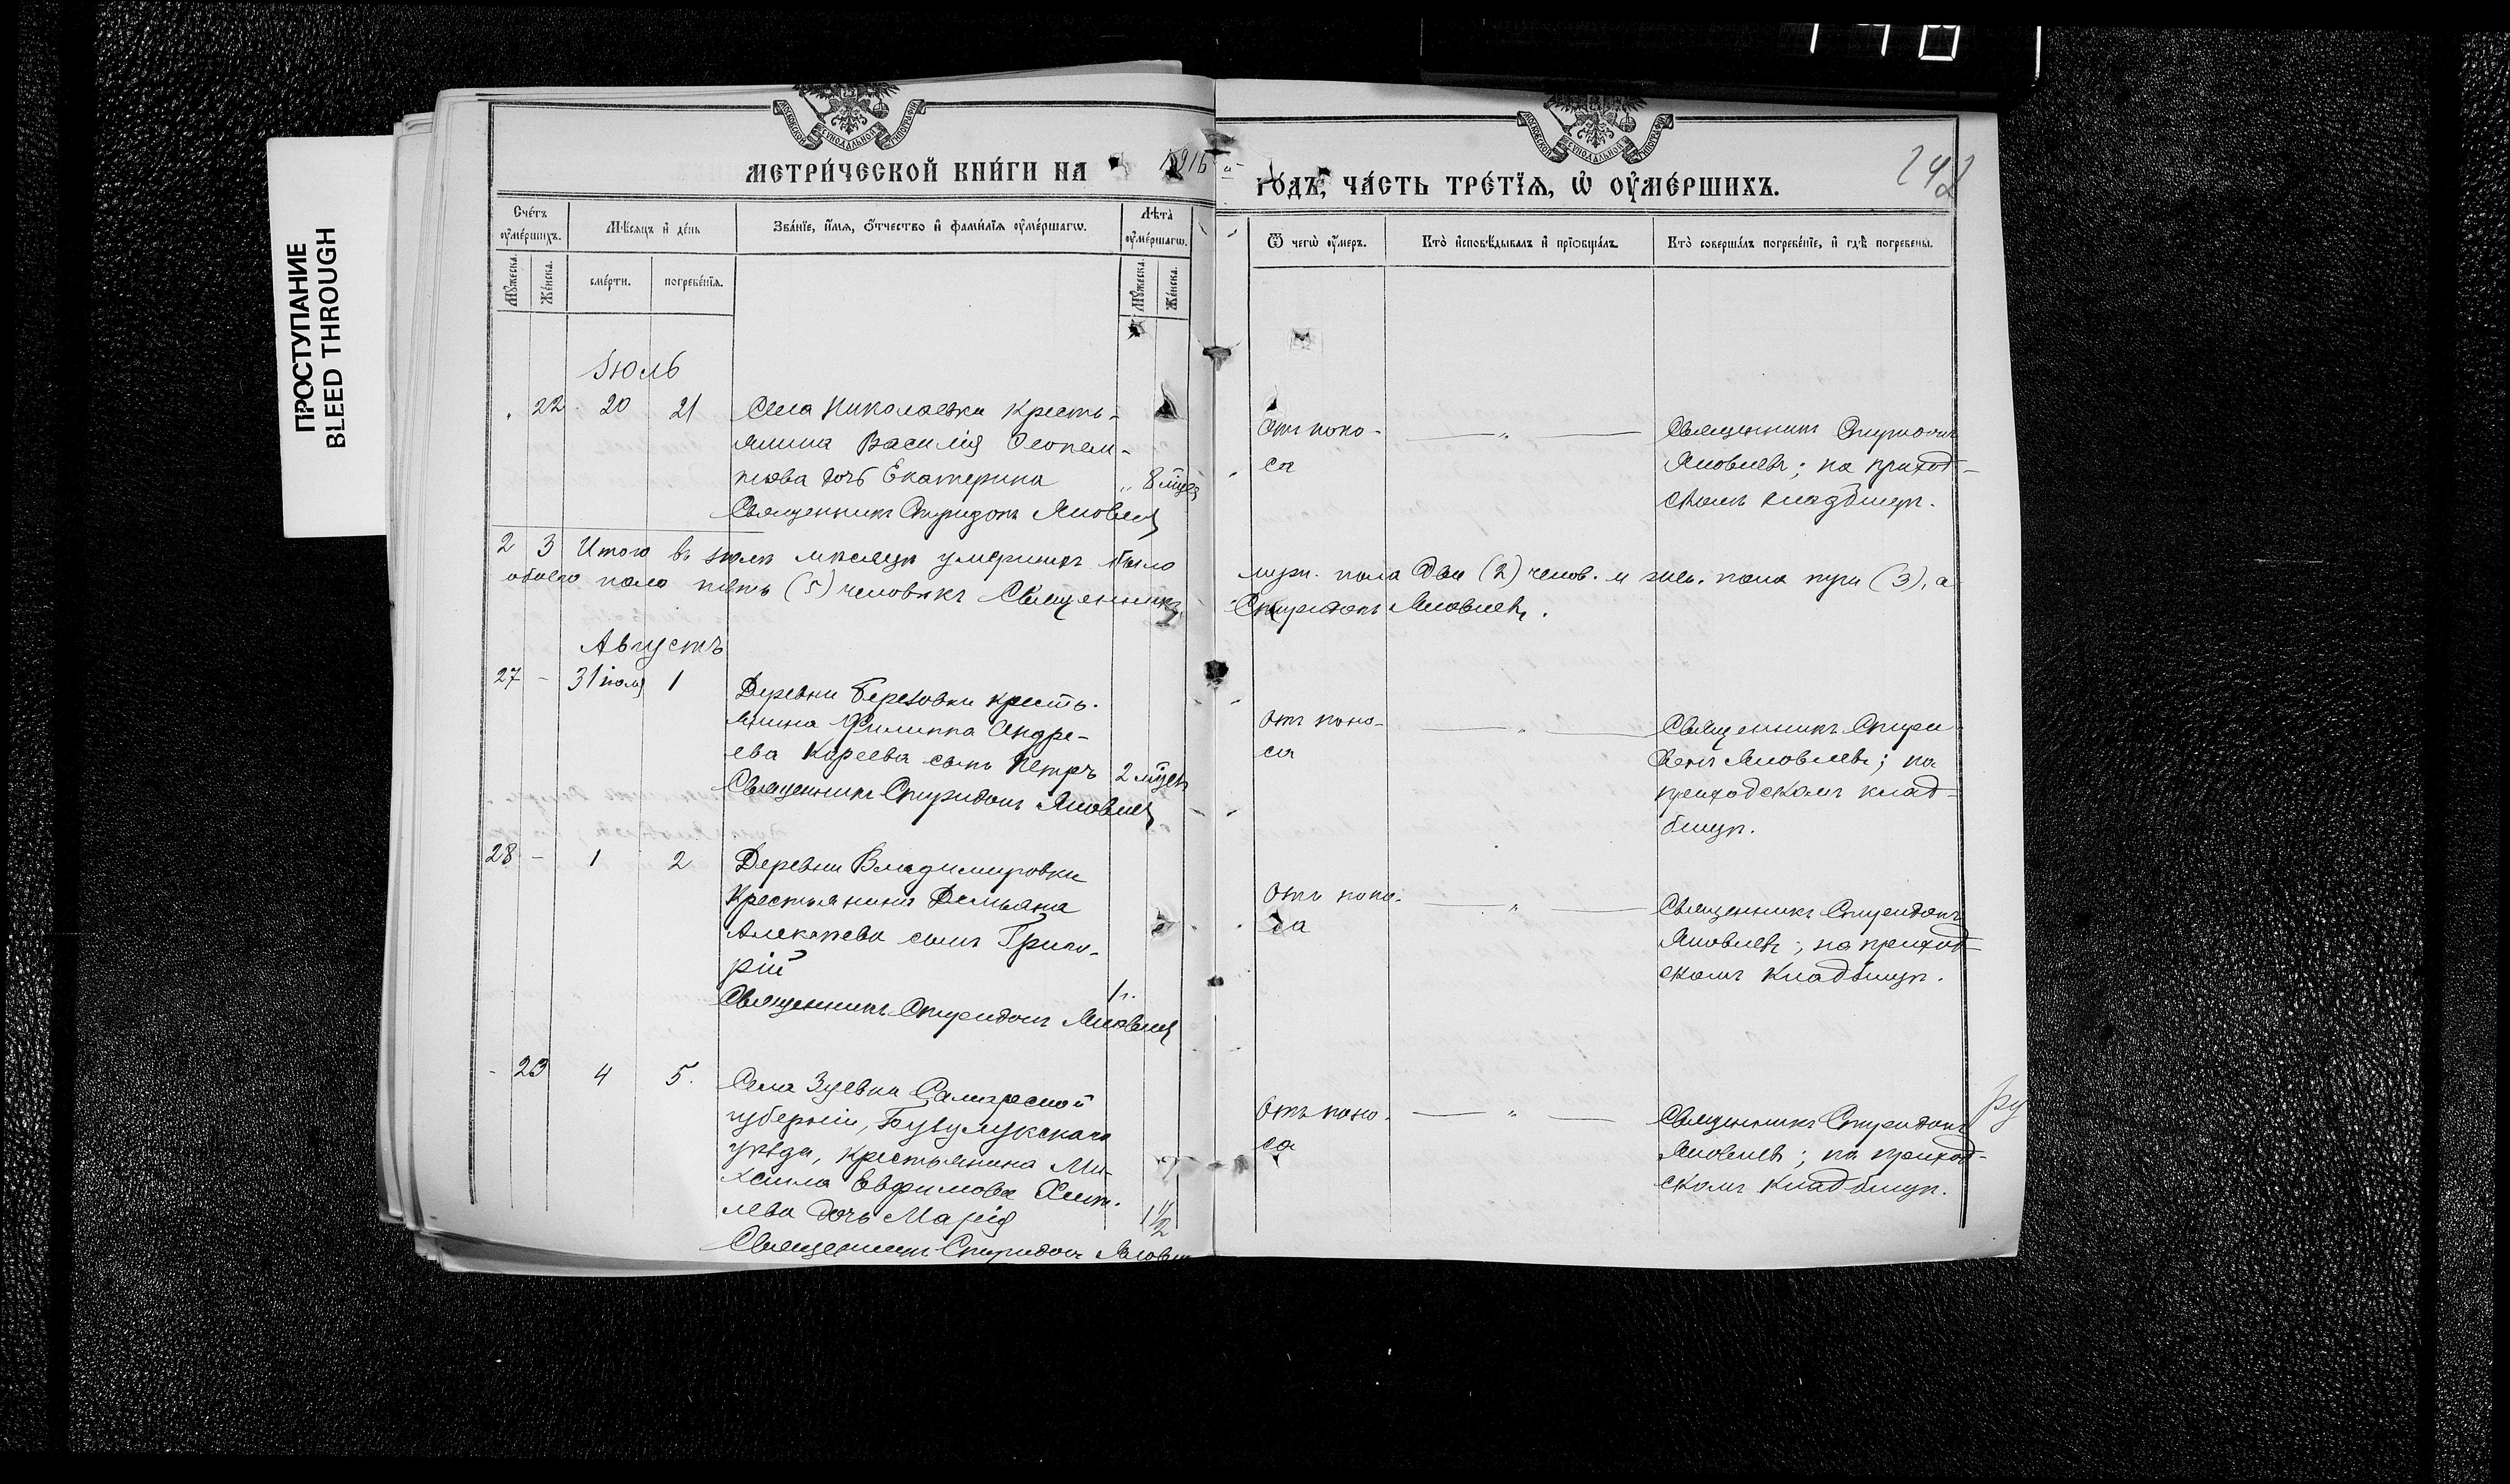 ПРОСТУПАНИЕ
BLEED THROUGH
МЕТРИ́ЧЕСКОЙ КНИ́ГИ НА 1916 й ГО́ДЪ, ЧА́СТЬ ТРЕ́ТЇѦ, Ѡ҆ ОУ҆МЕ́РШИХЪ.
242
Сче́тъ оу҆ме́ршихъ.
Мꙋ́жеска.
Же́нска.
Мѣ́сѧцъ и҆ де́нь
сме́рти.
погребе́нїѧ.
Зва́нїе, и҆́мѧ, ѻ҆́тчество и҆ фами́лїѧ оу҆ме́ршагѡ.
Лѣ́та оу҆ме́ршагѡ.
Мꙋ́жеска.
Же́нска.
Ѿ чегѡ̀ оу҆́меръ.
Кто̀ и҆сповѣ́дывалъ и҆ прїѡбща́лъ.
Кто̀ соверша́лъ погребе́нїе, и҆ гдѣ̀ погребены̀.
Іюль
22 20 21 Села Николаевки кресть-
янина Василія
дочь Екатерина 8 мѣс.
Священникъ Спиридонъ Яковлевъ
Отъ поно-
са
Священникъ Спиридонъ
Яковлевъ; на приход-
скомъ кладбищѣ.
2 3 Итого въ іюлѣ мѣсяцѣ умершихъ было муж. пола два (2) челов. и жен. пола три (3), а
обоего пола пять (5) человѣкъ Священникъ Спиридонъ Яковлевъ.
Августъ
27 - 31 іюля 1 Деревни Березовки кресть-
янина Филиппа Андре-
ева Кареева сынъ Петръ 2 мѣсец
Священникъ Спиридонъ Яковлевъ
Отъ поно-
са
Священникъ Спири
донъ Яковлевъ; на
приходскомъ клад-
бищѣ.
28 - 1 2 Деревни Владимировки
Крестьянина Демьяна
Алексѣева сынъ Григо-
рій 1 г.
Священникъ Спиридонъ Яковлевъ
Отъ поно-
са
Священникъ Спиридонъ
Яковлевъ; на приход-
скомъ кладбищѣ.
- 23 4 5. Села Зуевки Самарской
губерніи, Бузулукскаго
уѣзда, крестьянина Ми-
хаила Евфимова
дочь Марія 1 1/2
Священникъ Спиридонъ Яковлевъ
Отъ поно-
са
Священникъ Спиридонъ
Яковлевъ; на приход-
скомъ кладбищѣ.